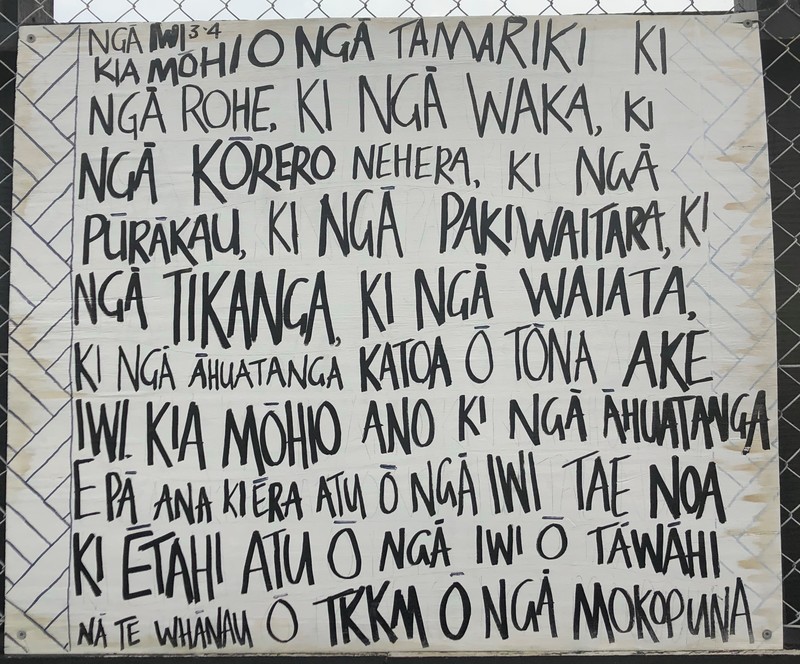 NGĀ IWI 3·4
KIA MŌHIO NGĀ TAMARIKI KI
NGĀ ROHE, KI NGĀ WAKA, KI
NGĀ KŌRERO NEHERA, KI NGĀ
PŪRĀKAU, KI NGĀ PAKIWAITARA, KI
NGĀ TIKANGA, KI NGĀ WAIATA,
KI NGĀ ĀHUATANGA KATOA Ō TŌNA AKE
IWI. KIA MŌHIO ANO KI NGĀ ĀHUATANGA
E PĀ ANA KI ĒRA ATU Ō NGĀ IWI TAE NOA
KI ĒTAHI ATU Ō NGĀ IWI Ō TĀWĀHI
NĀ TE WHĀNAU Ō TKKM Ō NGĀ MOKOPUNA